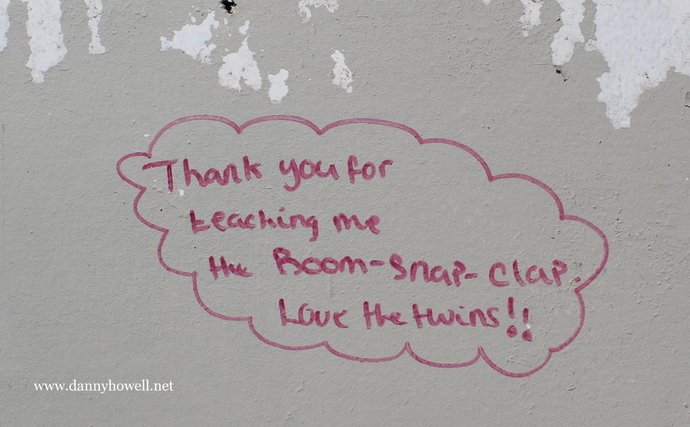 Thank you for
teaching me
the Boom-Snap-Clap.
Love the twins!!
www.dannyhowell.net